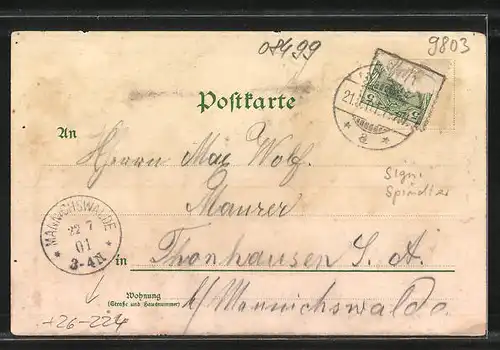 08499
9803
Postkarte
An
Herrn Max Wolf.
Maurer
Sign.
Spindler
MANNICHSWALDE
22 7
01
3-4N
in Thonhausen S. A.
Wohnung
(Straße und Hausnummer)
b/ Mannichswalde.
+26-224